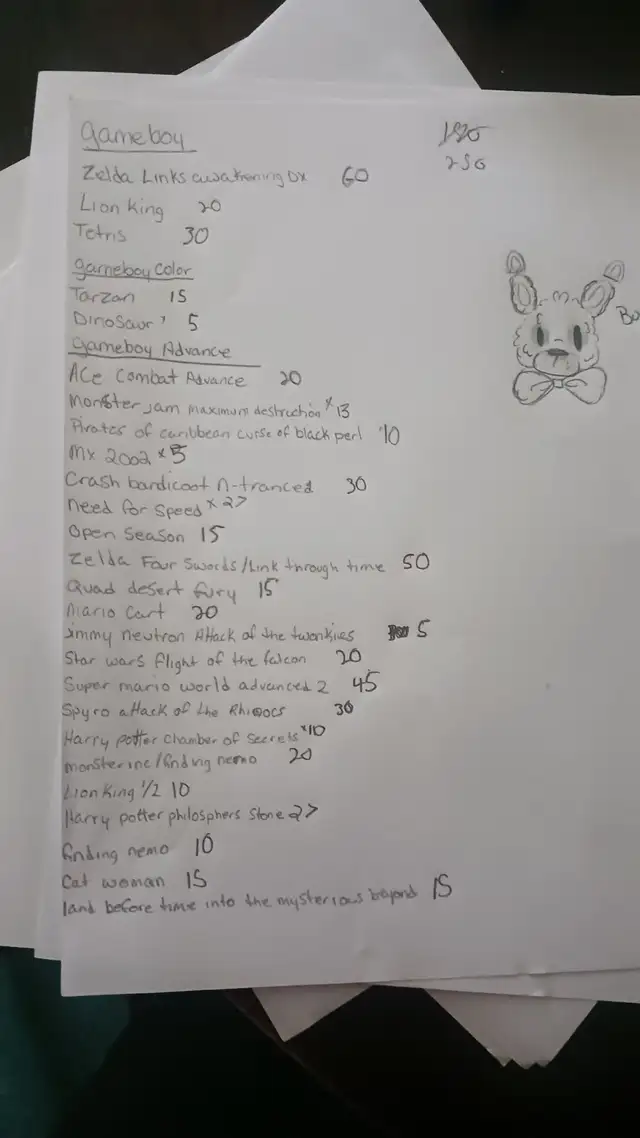 gameboy
Zelda Links awakening DX 60
Lion King 20
Tetris 30
gameboy Color
Tarzan 15
Dinosaur' 5
Gameboy Advance
Ace Combat Advance 20
Monster jam maximum destruction *13
Pirates of caribbean curse of black perl '10
Mx 2002 *5
Crash bandicoot n-tranced 30
need for speed *27
Open Season 15
Zelda Four Swords/Link through time 50
Quad desert fury 15
Mario Cart 20
Jimmy neutron Attack of the twonkies 5
Star wars flight of the falcon 20
Super mario world advanced 2 45
Spyro attack of the Rhinocs 30
Harry potter Chamber of Secrets *10
monster inc/finding nemo 20
Lion King 1/2 10
Harry potter philosphers Stone 27
finding nemo 10
Cat woman 15
land before time into the mysterious beyond 15
250
Bo